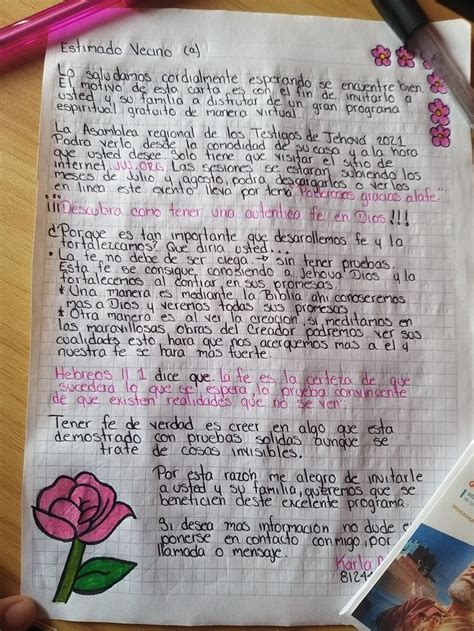 Estimado Vecino (a)
Lo saludamos cordialmente esperando se encuentre bien.
El motivo de esta carta, es con el fin de invitarlo a
usted y su familia a disfrutar de un gran programa
espiritual gratuito de manera virtual.
La Asamblea regional de los Testigos de Jehova 2021
Podra verlo desde la comodidad de su casa y a la hora
que usted desee. Solo tiene que visitar el sitio de
internet JW.ORG. Las sesiones se estaran subiendo los
meses de Julio y Agosto, podra descargarlos o verlos
en linea este evento lleva por tema Poderosos gracias a la fe
¡¡¡Descubra como tener una autentica fe en Dios!!!
¿Porque es tan importante que desarollemos fe y la
fortalezcamos? Que diria usted...
• La fe no debe de ser ciega → sin tener pruebas.
Esta fe se consigue, conosiendo a Jehova Dios y la
fortalecemos al confiar en sus promesas.
* Una manera es mediante la Biblia ahi conoseremos
mas a Dios y veremos todas sus promesas
* Otra manera es al ver la creacion, si meditamos en
las maravillosas obras del Creador podremos ver sus
cualidades esto hara que nos acerquemos mas a el y
nuestra fe se hara mas fuerte.
Hebreos 11 1 dice que la fe es la certeza de que
sucedera lo que se espera, la prueba convincente
de que existen realidades que no se ven.
Tener fe de verdad es creer en algo que esta
demostrado con pruebas solidas aunque se
trate de cosas invisibles.
Por esta razón me alegro de invitarle
a usted y su familia, queremos que se
beneficien deste excelente programa.
Si desea mas informacion no dude
ponerse en contacto conmigo, por
llamada o mensaje.
Karla
8124